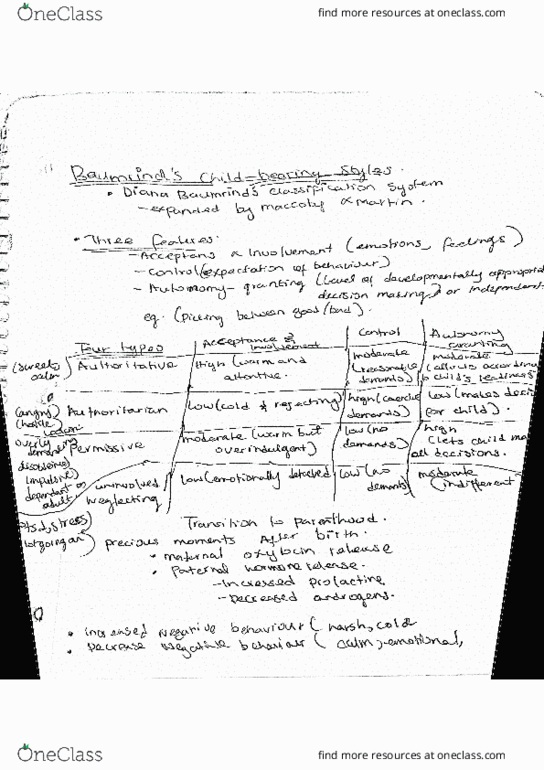 OneClass
find more resources at oneclass.com
Baumrind's Child-bearing Styles.
• Diana Baumrind's classification system
- expanded by maccoby & martin.
• Three features:
- Acceptans & Involvement (emotions, feelings)
- control (expectation of behaviour)
- Autonomy-granting (level of developmentally appropriate
decision making) or independent
eg. (picking between good/bad).
Four types
Acceptance & involvement
control
Autonomy granting
Authoritative
High (warm and attentive.
moderate (reasonable demands)
moderate (allows according to child's readiness
(angry) Authoritarian
low (cold & rejecting)
high (coercive demands)
low (makes deci for child).
overly demanding Permissive
moderate (warm but overindulgent)
low (no demands)
high (lets child ma all decisions.
impulsive
dependant on adult
uninvolved neglecting
low (emotionally detached
low (no demands
moderate (indifferent
Ptsd, stress)
Transition to parenthood.
precious moments After birth.
• maternal oxybcin release
• Paternal hormone release.
- Increased prolactine
- Decreased androgens.
• increased negative behaviour (harsh, cold
• Decrease negative behaviour (calm, emotional,
OneClass
find more resources at oneclass.com